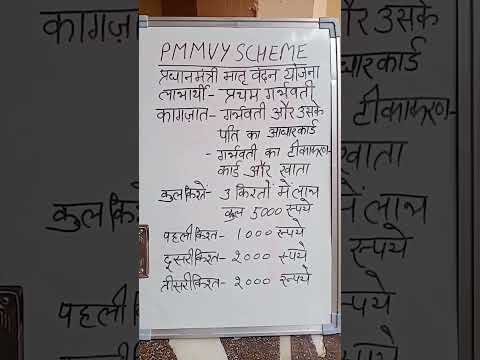 PMMVY SCHEME
प्रधानमंत्री मातृ वंदन योजना
लाभार्थी - प्रथम गर्भवती
कागज़ात - गर्भवती और उसके
पति का आधारकार्ड
- गर्भवती का टीकाकरण
कार्ड और खाता
कुल किस्ते - 3 किस्तों में लाभ
कुल 5000 रूपये
पहली किस्त - 1000 रूपये
दूसरी किस्त - 2000 रूपये
तीसरी किस्त - 2000 रूपये